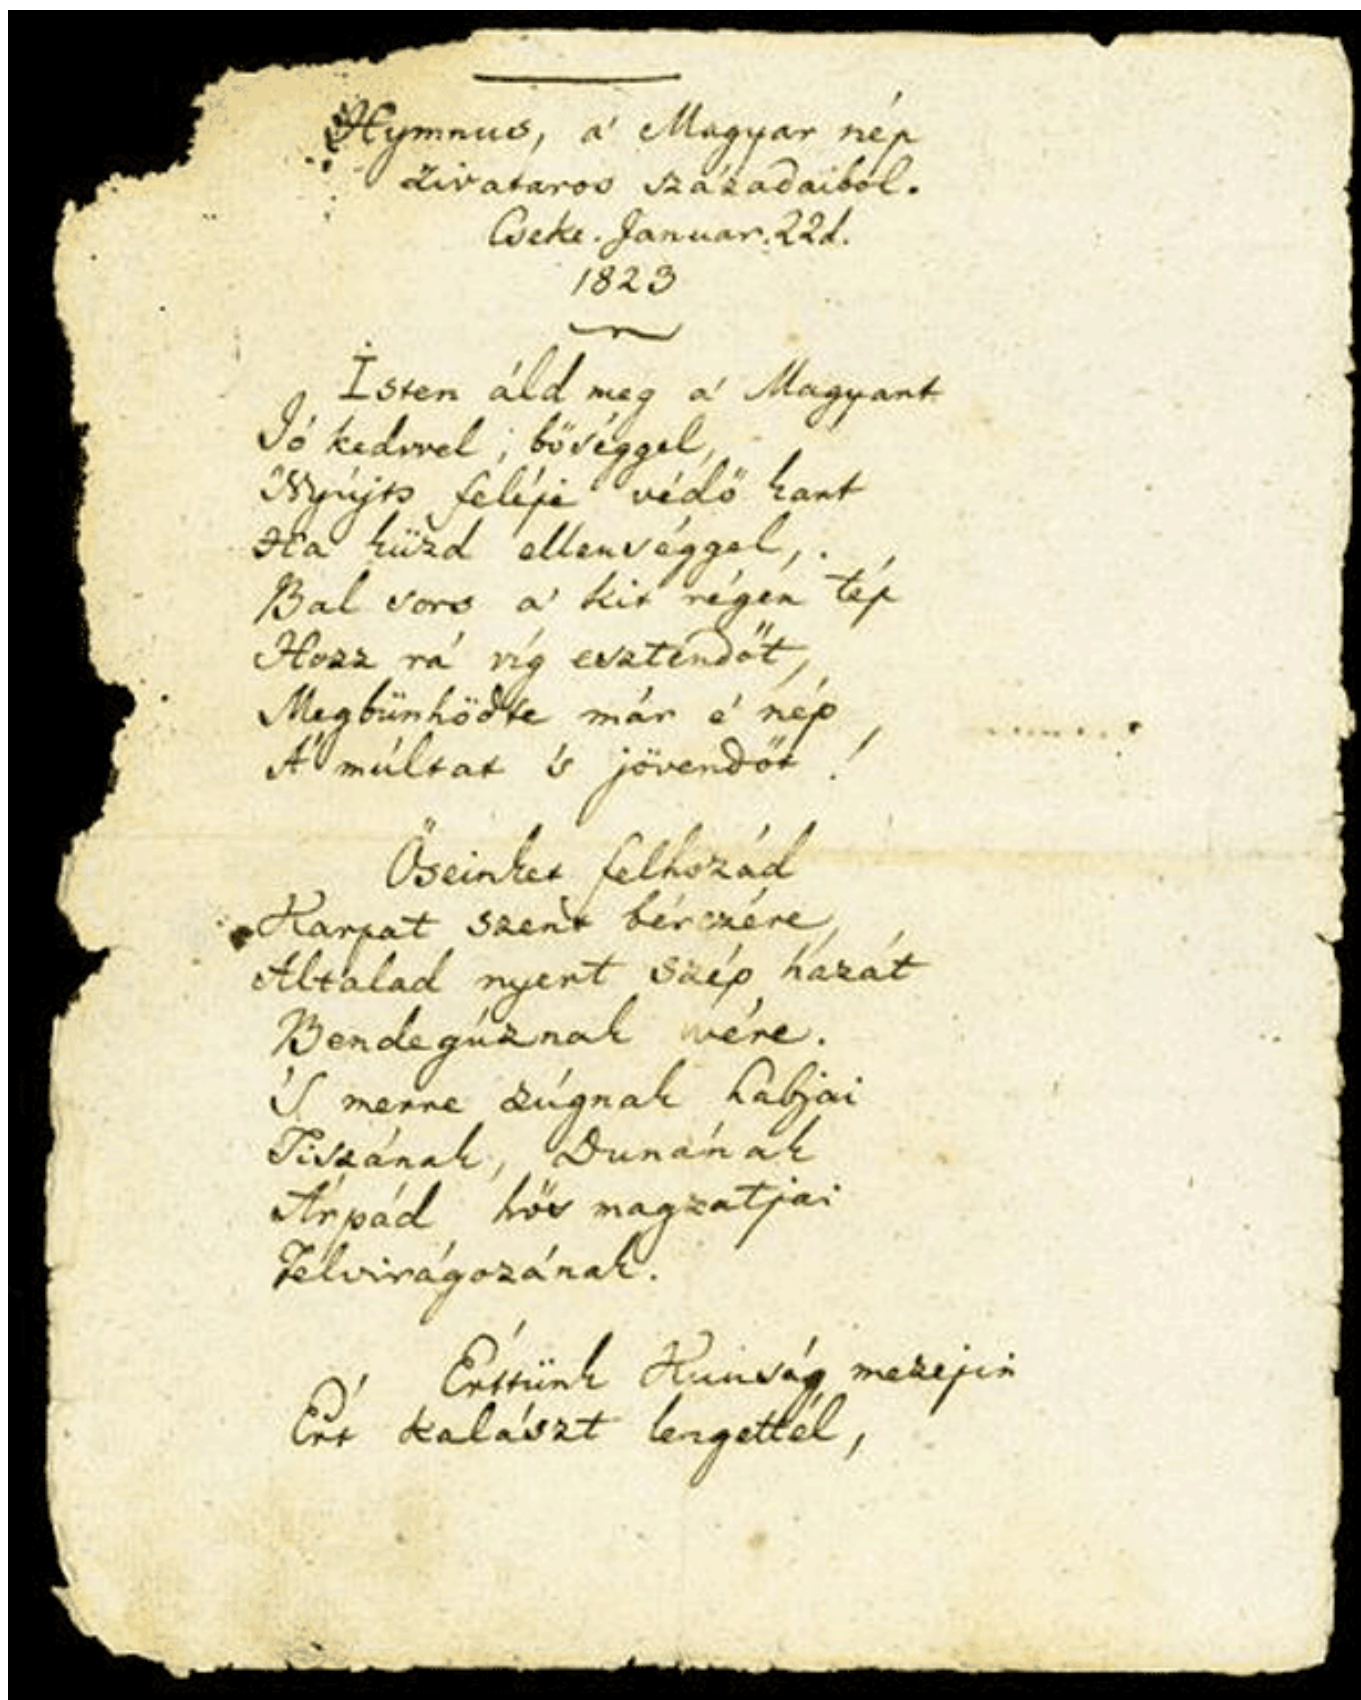 Hymnus, a' Magyar nép
zivataros századaiból.
Cseke. Januar. 22d.
1823
Isten áld meg a' Magyart
Jó kedvvel, bőséggel,
Nyújts feléje védő kart
Ha küzd ellenséggel,
Bal sors a' kit régen tép
Hozz rá víg esztendőt,
Megbünhödte már e' nép
A' múltat 's jövendőt!
Őseinket felhozád
Karpat szent bérczére,
Altalad nyert szép hazát
Bendegúznak vére.
'S merre zúgnak habjai
Tiszának, Dunának
Árpád hős magzatjai
Felvirágozának.
Érttünk Kunság mezejin
Ért kalászt lengettél,